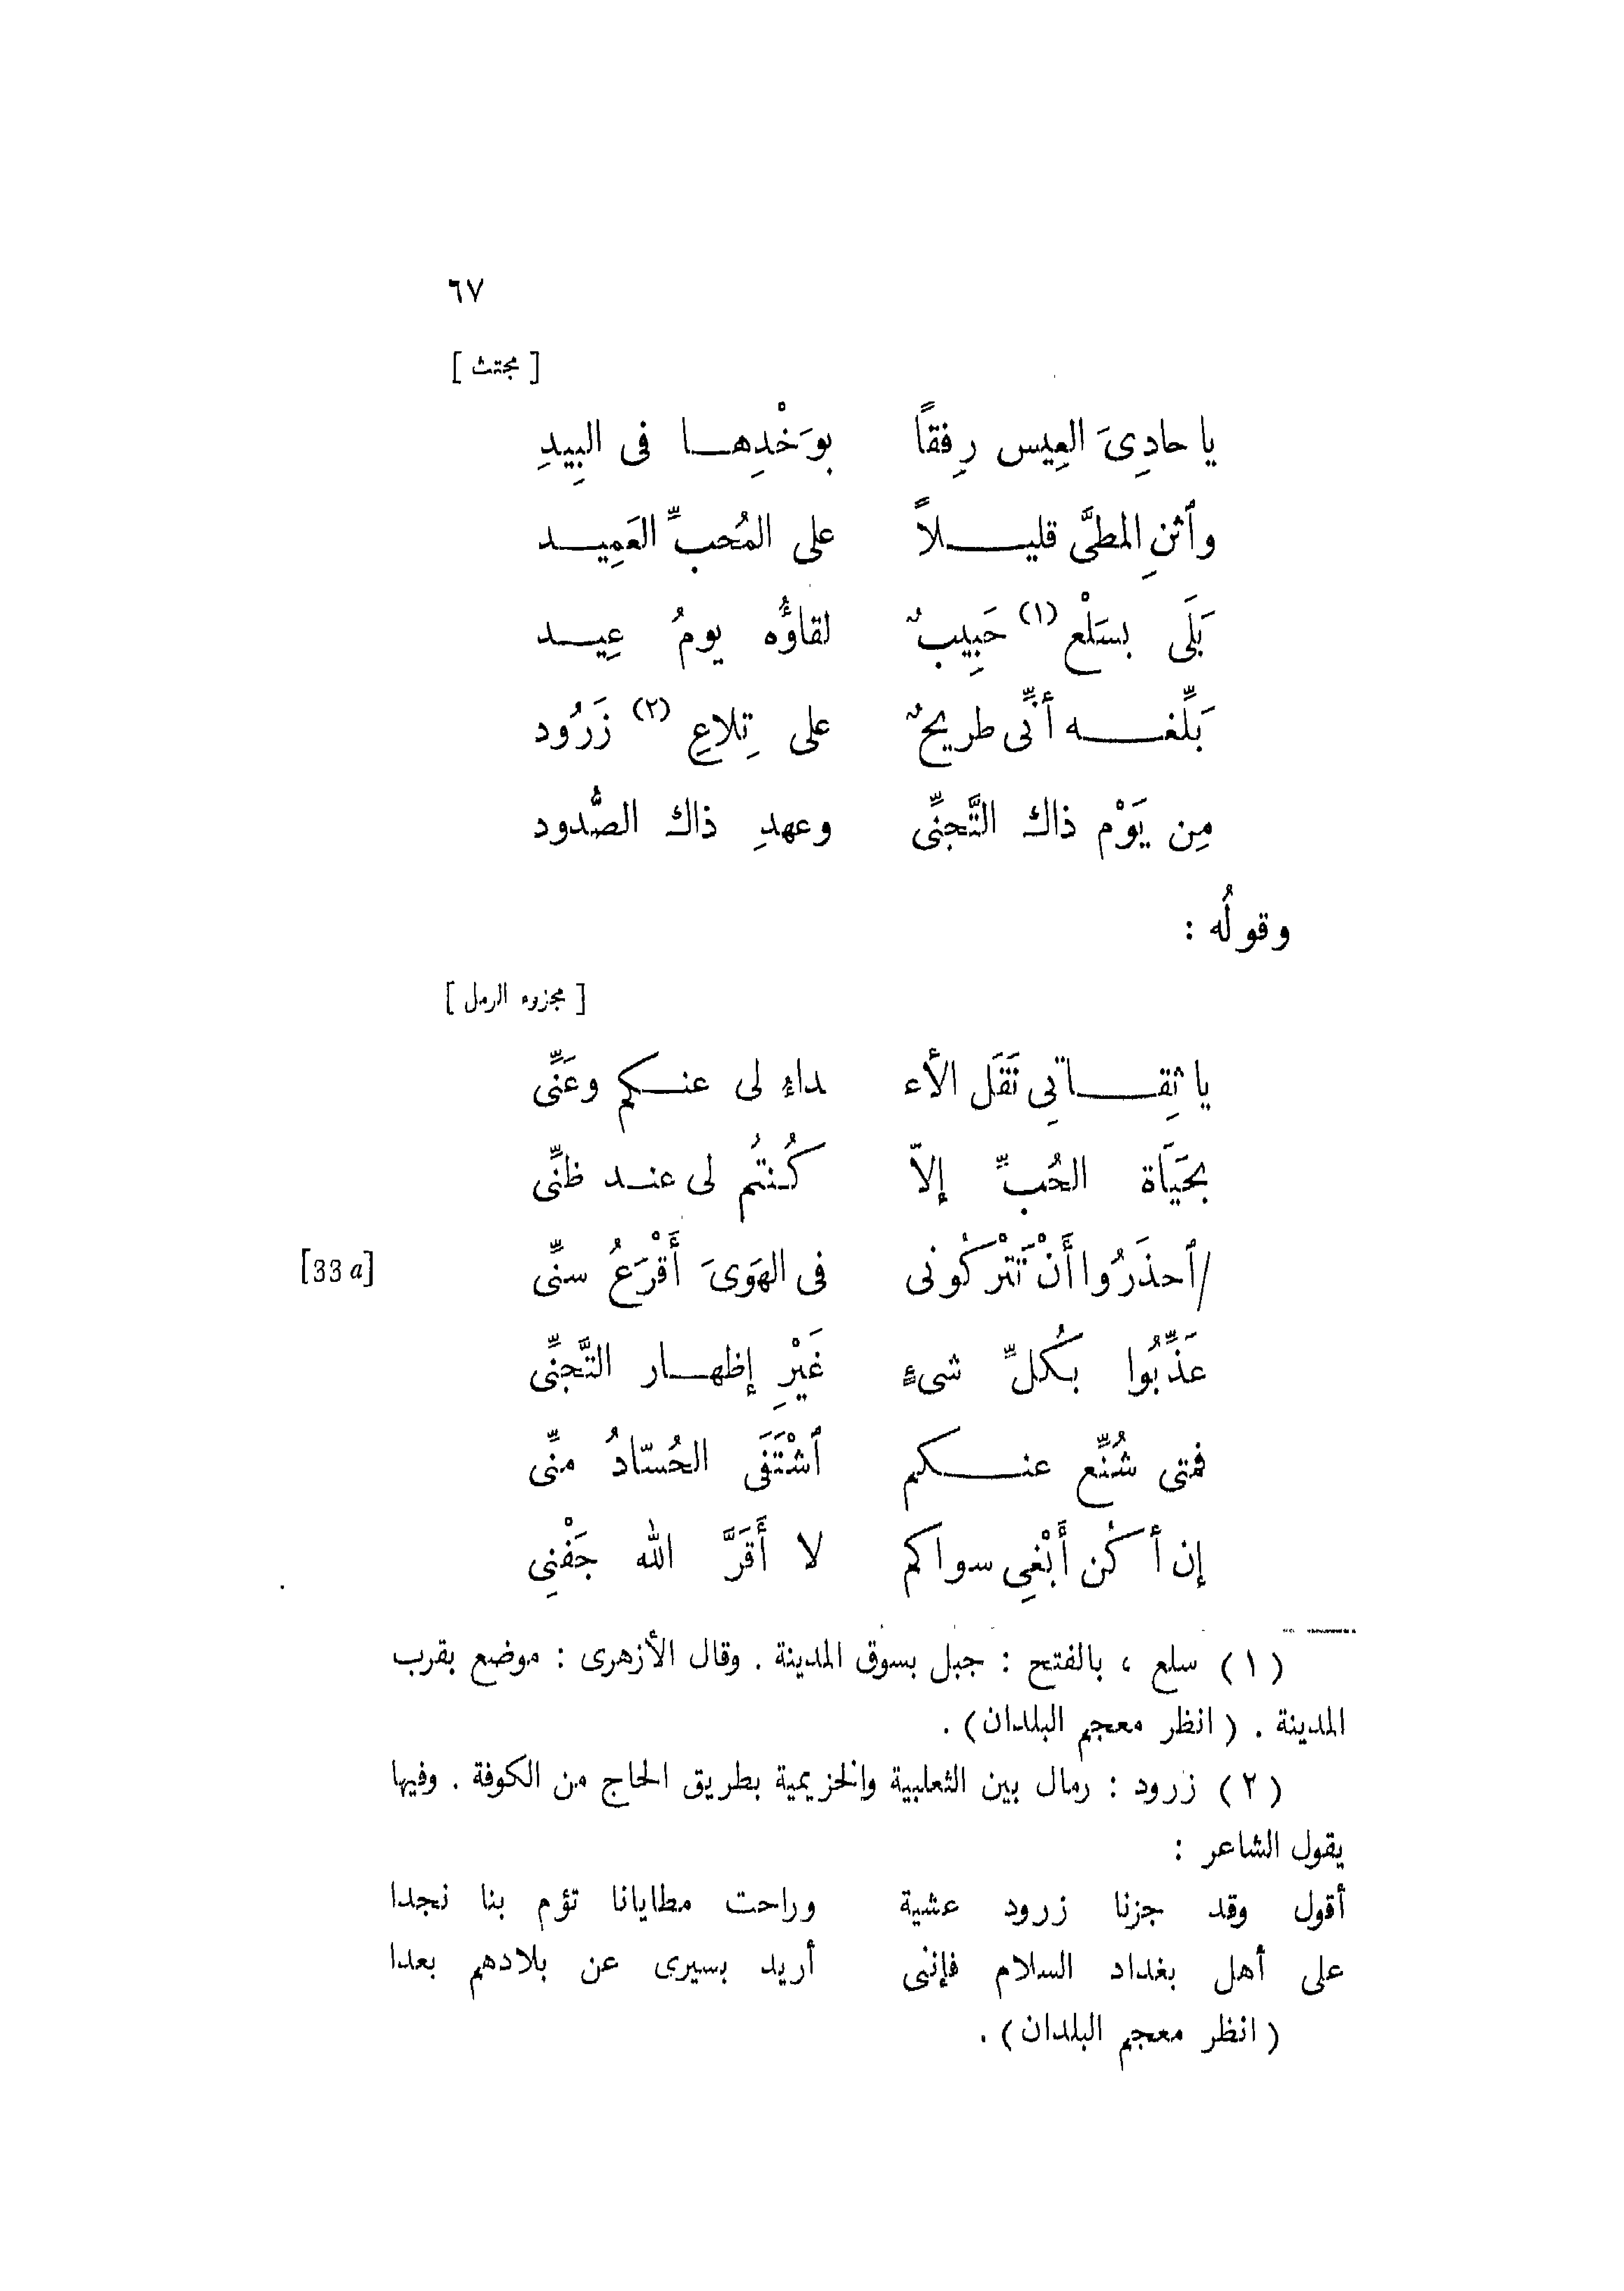 ٦٧
[ مجتث ]
يا حادِىَ العِيس رِفقاً بوَخْدِهـا فى البِيدِ
وٱثنِ المطىَّ قليـلاً على المُحبِّ العَمِيـد
بَلَى بسَلْع (١) حَبِيبٌ لقاؤُه يومُ عِيـد
بَلِّغـه أنِّى طريحٌ على تِلاعِ (٢) زَرُود
مِن يَوْم ذاك التَّجنِّى وعهدِ ذاك الصُّدود
وقولُه :
[ مجزوء الرمل ]
يا ثِقـاتِى نَقَل الأع داءُ لى عنـكم وعَنِّى
بحَيَاة الحُبِّ إلاّ كُنتُم لى عنـد ظنِّى
/ٱحذَرُوا أَنْ تَتْركُونى فى الهَوَىَ أَقْرَعُ سنِّى
[33 a]
عَذِّبُوا بكُلِّ شىءٍ غَيْرِ إظهـار التَّجنِّى
فمتى شُنِّع عنـكم ٱشْتَفَى الحُسّادُ منِّى
إن أكُن أَبْغِى سواكم لا أَقَرَّ الله جَفْنِى
(١) سلع ، بالفتح : جبل بسوق المدينة . وقال الأزهرى : موضع بقرب
المدينة . (انظر معجم البلدان) .
(٢) زرود : رمال بين الثعلبية والخزيمية بطريق الحاج من الكوفة . وفيها
يقول الشاعر :
أقول وقد جزنا زرود عشية وراحت مطايانا تؤم بنا نجدا
على أهل بغداد السلام فإننى أريد بسيرى عن بلادهم بعدا
(انظر معجم البلدان) .